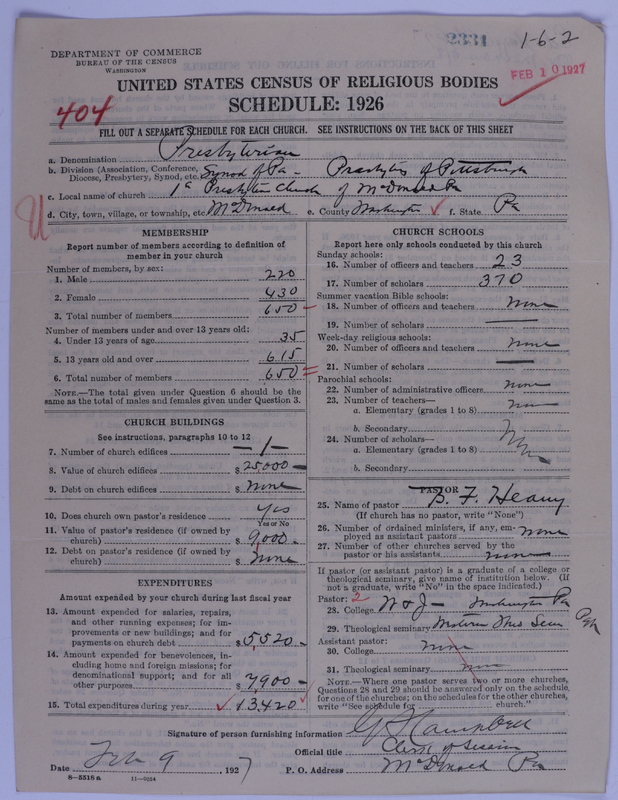 2331
1-6-2
DEPARTMENT OF COMMERCE
BUREAU OF THE CENSUS
WASHINGTON
FEB 10 1927
UNITED STATES CENSUS OF RELIGIOUS BODIES
SCHEDULE: 1926
404
FILL OUT A SEPARATE SCHEDULE FOR EACH CHURCH. SEE INSTRUCTIONS ON THE BACK OF THIS SHEET
a. Denomination Presbyterian
b. Division (Association, Conference, Diocese, Presbytery, Synod, etc. Synod of Pa - Presbytery of Pittsburgh
c. Local name of church 1st Presbyterian Church of McDonald Pa
d. City, town, village, or township, etc. McDonald e. County Washington f. State Pa
U
MEMBERSHIP
Report number of members according to definition of member in your church
Number of members, by sex:
1. Male 220
2. Female 430
3. Total number of members 650
Number of members under and over 13 years old:
4. Under 13 years of age 35
5. 13 years old and over 615
6. Total number of members 650
NOTE.—The total given under Question 6 should be the same as the total of males and females given under Question 3.
CHURCH BUILDINGS
See instructions, paragraphs 10 to 12
7. Number of church edifices —1—
8. Value of church edifices $25,000
9. Debt on church edifices $ none
10. Does church own pastor's residence yes
Yes or No
11. Value of pastor's residence (if owned by church) $9,000
12. Debt on pastor's residence (if owned by church) $ none
EXPENDITURES
Amount expended by your church during last fiscal year
13. Amount expended for salaries, repairs, and other running expenses; for improvements or new buildings; and for payments on church debt $5,520
14. Amount expended for benevolences, including home and foreign missions; for denominational support; and for all other purposes $7,900
15. Total expenditures during year $13,420
CHURCH SCHOOLS
Report here only schools conducted by this church
Sunday schools:
16. Number of officers and teachers 23
17. Number of scholars 370
Summer vacation Bible schools:
18. Number of officers and teachers none
19. Number of scholars —
Week-day religious schools:
20. Number of officers and teachers none
21. Number of scholars —
Parochial schools:
22. Number of administrative officers none
23. Number of teachers—
a. Elementary (grades 1 to 8)
b. Secondary
24. Number of scholars—
a. Elementary (grades 1 to 8)
b. Secondary
PASTOR
25. Name of pastor B. F. Heany
(If church has no pastor, write "None")
26. Number of ordained ministers, if any, employed as assistant pastors none
27. Number of other churches served by the pastor or his assistants none
If pastor (or assistant pastor) is a graduate of a college or theological seminary, give name of institution below. (If not a graduate, write "No" in the space indicated.)
Pastor: 2
28. College W & J - Washington Pa
29. Theological seminary Western Theo Sem Pgh
Assistant pastor:
30. College none
31. Theological seminary none
NOTE.—Where one pastor serves two or more churches, Questions 28 and 29 should be answered only on the schedule for one of the churches; on the schedules for the other churches, write "See schedule for church."
Signature of person furnishing information Campbell
Official title Clerk of Session
Date Feb 9 1927
P. O. Address McDonald Pa
8—5516 a 11—9054